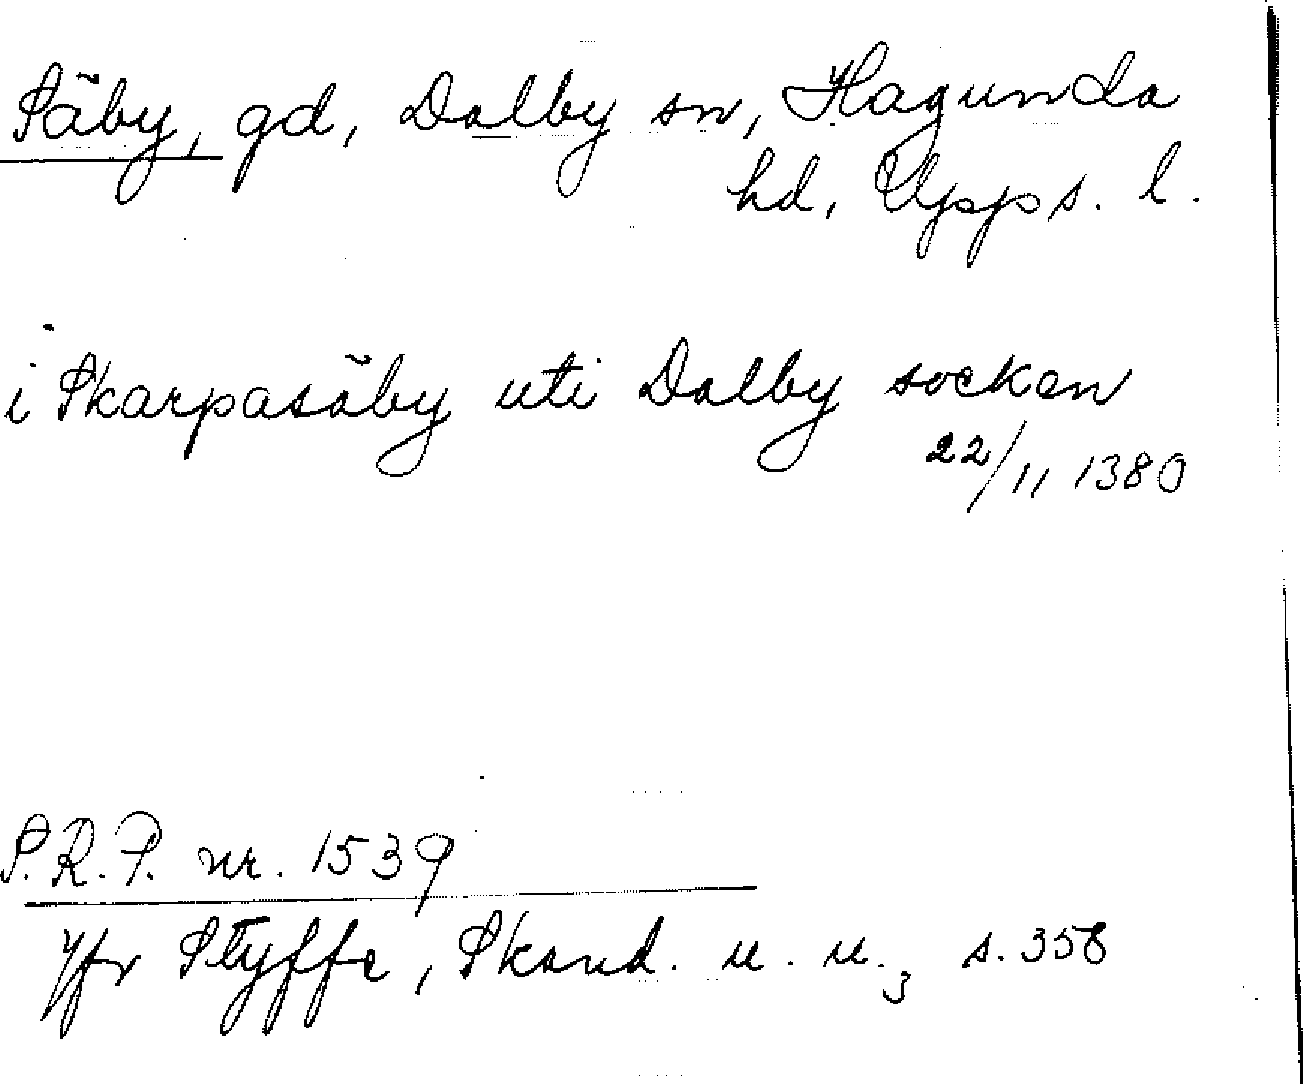 Säby, gd, Dalby sn, Hagunda
hd, Upps. l.
i Skarpasäby uti Dalby socken
22/11 1380
S.R.P. nr. 1539
Jfr Styffe, Skand. u. u.3 s. 358